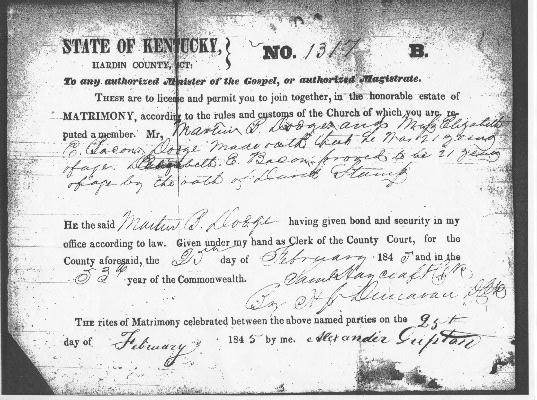 STATE OF KENTUCKY,
HARDIN COUNTY, SCT:
NO. 1317 B.
To any authorized Minister of the Gospel, or authorized Magistrate.
THESE are to license and permit you to join together, in the honorable estate of
MATRIMONY, according to the rules and customs of the Church of which you are re-
puted a member. Mr, Martin B. Dodge and Miss Elizabeth
E. Bacon Dodge made oath that he was years
of age. Elizabeth E. Bacon proved to be 21 years
of age by the oath of David Stamp
HE the said Martin B. Dodge having given bond and security in my
office according to law. Given under my hand as Clerk of the County Court, for the
County aforesaid, the 25th day of February 1845 and in the
53d year of the Commonwealth. Saml Haycraft Clk
By H G
THE rites of Matrimony celebrated between the above named parties on the
day of February 1845 by me. Alexander Gupton